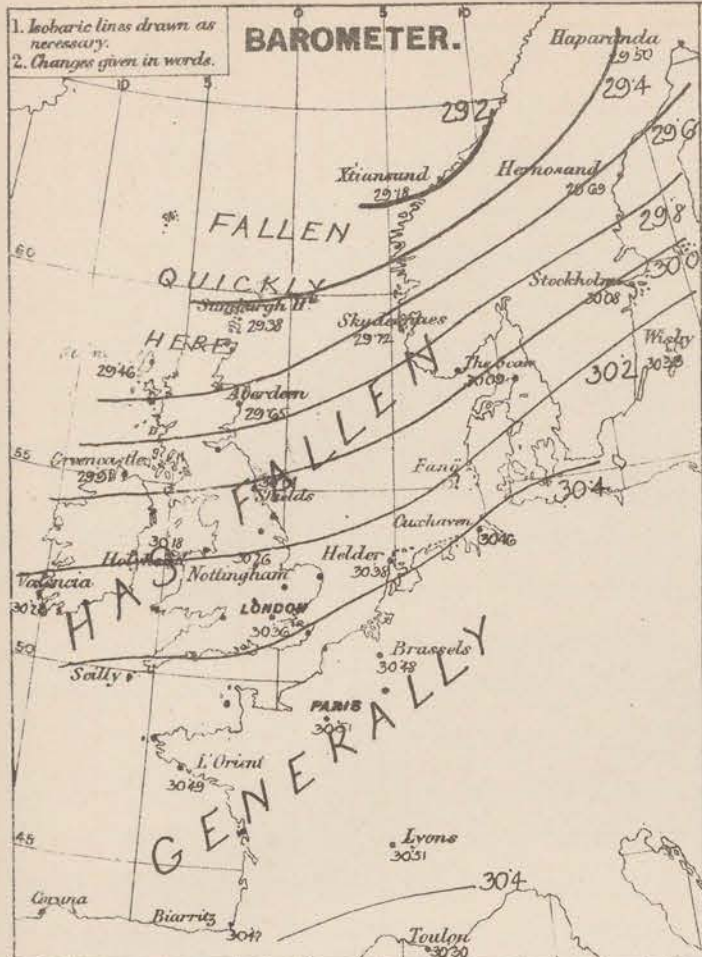 1. Isobaric lines drawn as
necessary.
2. Changes given in words.
BAROMETER.
10 5 0 5 10
Haparanda
29·50
29·4
29·2
29·6
Xtiansund
29·18
Hernosand
29·69
FALLEN
29·8
60
QUICKLY
Stockholm
30·08
30·0
Sumburgh Hd.
29·38
Skudesnaes
29·72
HERE
Wisby
29·46
The Scaw
30·09
30·2
Aberdeen
29·65
55
Greencastle
Fanö
30·4
Shields
Cuxhaven
30·46
30·18
Holyhead
30·26
Nottingham
Helder
30·38
Valencia
LONDON
30·36
HAS FALLEN
50
Scilly
Brussels
30·48
PARIS
30·51
L'Orient
30·49
GENERALLY
45
Lyons
30·51
30·4
Coruna
Biarritz
30·47
Toulon
30·30